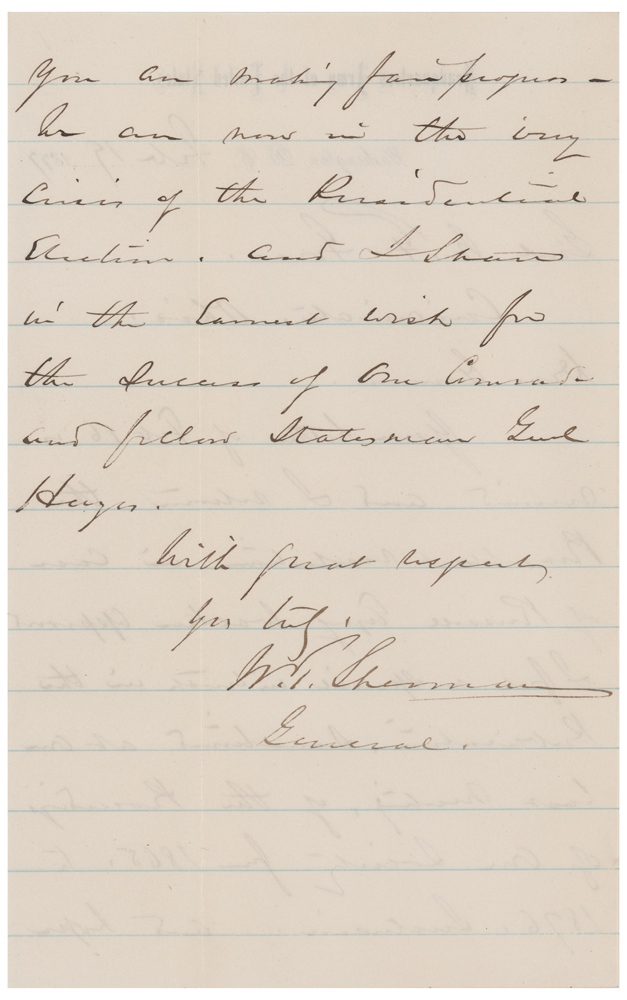 you are making fair progress –
We are now in the very
crisis of the Presidential
Election. and I Share
in the Earnest wish for
the Success of our Comrade
and fellow Statesman Genl
Hayes.
With great respect,
yrs truly,
W. T. Sherman
General.